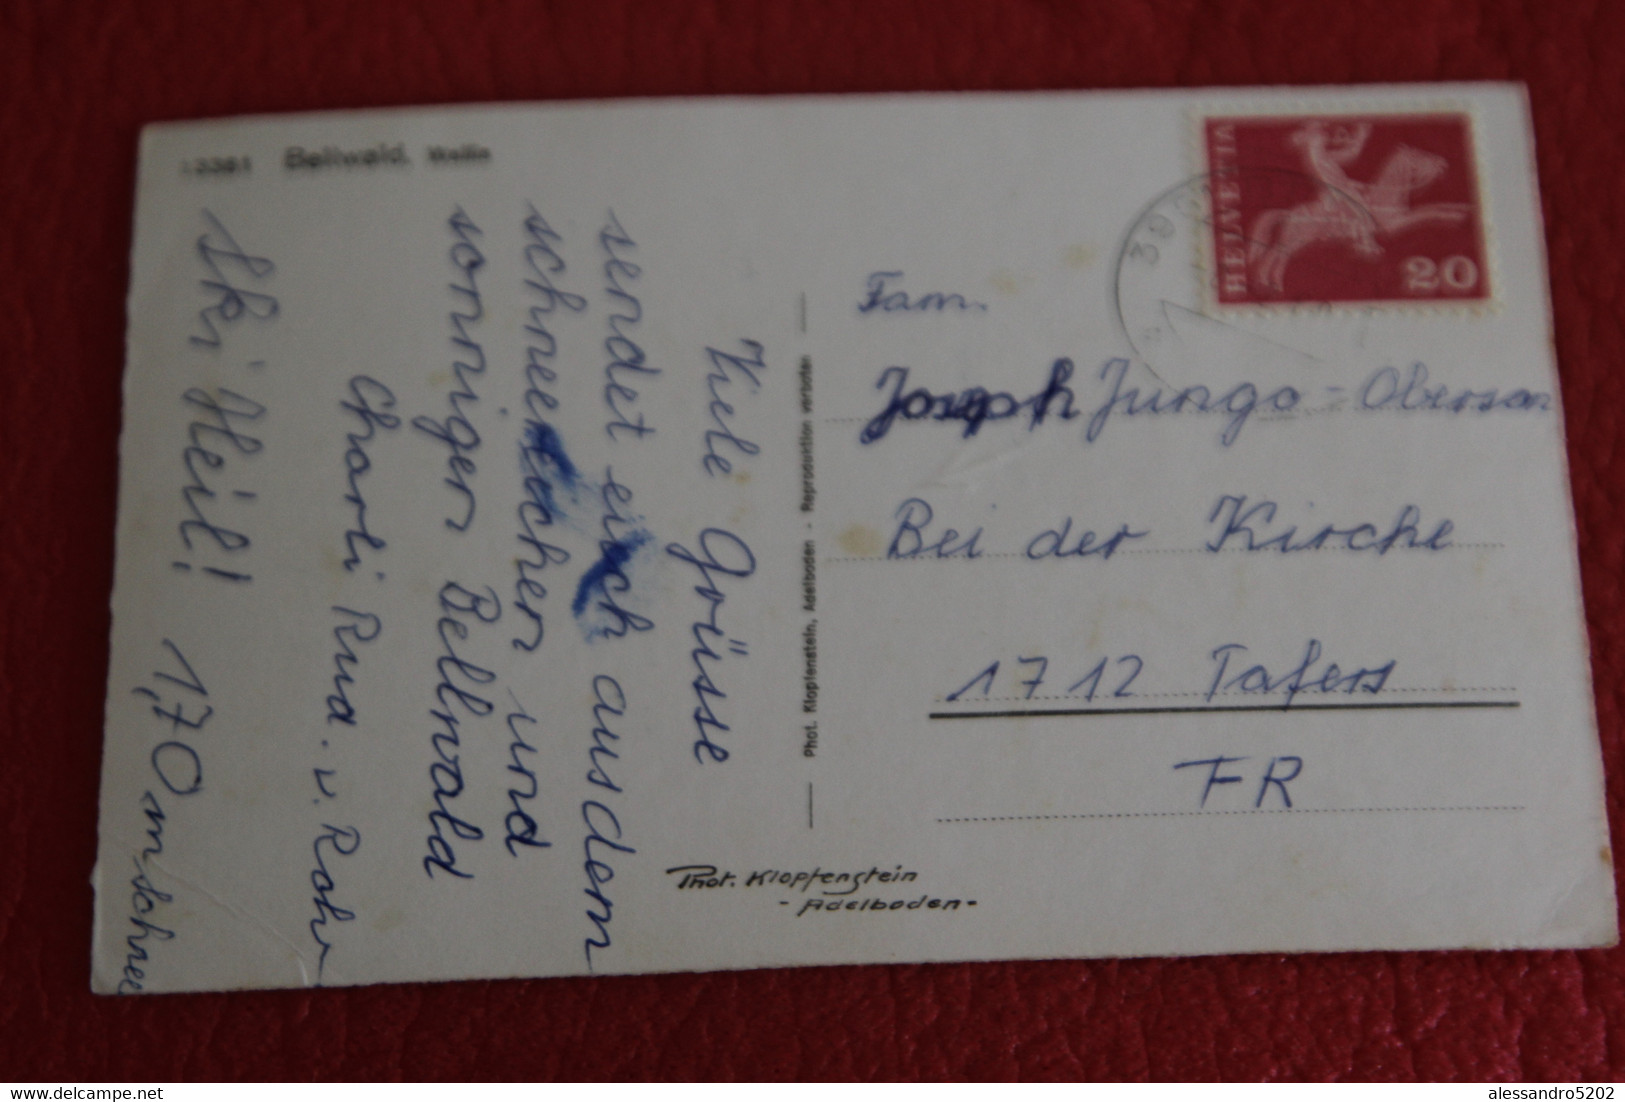 13361 Bellwald, Wallis
Viele Grüsse
sendet euch aus dem
schneeicher und
sonniger Bellwald
Charli Rud. v. Rohr
Ski Heil! 1,70 m Schnee
Phot. Klopfenstein, Adelboden - Reproduktion verboten
Phot. Klopfenstein
- Adelboden -
HELVETIA
20
Fam.
Joseph Jungo = Oberson
Bei der Kirche
1712 Tafers
FR
alessandro5202